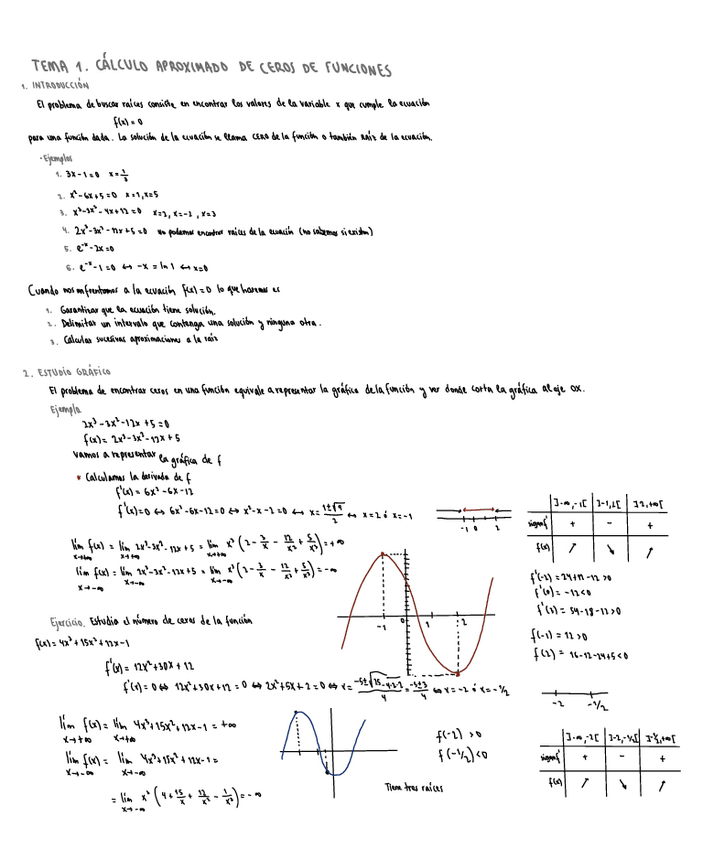 TEMA 1. CÁLCULO APROXIMADO DE CEROS DE FUNCIONES
1. INTRODUCCIÓN
El problema de buscar raíces consiste en encontrar los valores de la variable x que cumple la ecuación
f(x) = 0
para una función dada. La solución de la ecuación se llama CERO de la función o también RAÍZ de la ecuación.
· Ejemplos
1. 3x-1=0 x=1/3
2. x²-6x+5=0 x=1, x=5
3. x³-3x²-4x+12=0 x=2, x=-2, x=3
4. 2x³-3x²-12x+5=0 no podemos encontrar raíces de la ecuación (no sabemos si existen)
5. e⁻ˣ-2x=0
6. e⁻ˣ-1=0 ↔ -x = ln 1 ↔ x=0
Cuando nos enfrentamos a la ecuación f(x)=0 lo que haremos es
1. Garantizar que la ecuación tiene solución.
2. Delimitar un intervalo que contenga una solución y ninguna otra.
3. Calcular sucesivas aproximaciones a la raíz
2. ESTUDIO GRÁFICO
El problema de encontrar ceros en una función equivale a representar la gráfica de la función y ver donde corta la gráfica al eje OX.
Ejemplo
2x³-3x²-12x+5=0
f(x)= 2x³-3x²-12x+5
Vamos a representar la gráfica de f
* Calculamos la derivada de f
f'(x) = 6x²-6x-12
f'(x)=0 ↔ 6x²-6x-12=0 ↔ x²-x-2=0 ↔ x= (1±√9)/2 ↔ x=2 ó x=-1
-1 0 2
]-∞,-1[ ]-1,2[ ]2,+∞[
signo f' + - +
f(x) ↗ ↘ ↗
lím f(x) = lím 2x³-3x²-12x+5 = lím x³(2-3/x-12/x²+5/x³)=+∞
x→+∞ x→+∞ x→+∞
lím f(x) = lím 2x³-3x²-12x+5 = lím x³(2-3/x-12/x²+5/x³)=-∞
x→-∞ x→-∞ x→-∞
-1 0 1 2
f'(-2) = 24+12-12>0
f'(0) = -12<0
f'(3) = 54-18-12>0
f(-1) = 12>0
f(2) = 16-12-24+5<0
Ejercicio. Estudia el número de ceros de la función
f(x)=4x³+15x²+12x-1
f'(x) = 12x²+30x+12
f'(x)=0 ↔ 12x²+30x+12=0 ↔ 2x²+5x+2=0 ↔ x= (-5±√25-4·2·2)/4 = (-5±3)/4 ↔ x=-2 ó x=-1/2
-2 -1/2
lím f(x) = lím 4x³+15x²+12x-1 = +∞
x→+∞ x→+∞
lím f(x) = lím 4x³+15x²+12x-1=
x→-∞ x→-∞
= lím x³(4+15/x+12/x²-1/x³)=-∞
x→-∞
f(-2) >0
f(-1/2)<0
Tiene tres raíces
]-∞,-2[ ]-2,-1/2[ ]-1/2,+∞[
signo f' + - +
f(x) ↗ ↘ ↗